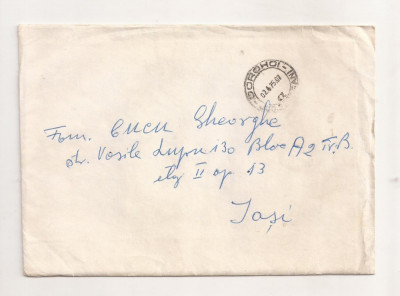 DOROHOI
Fam. Cucu Gheorghe
str. Vasile Lupu 130 Bloc A2 Tr. B.
etaj II ap 43
Iași